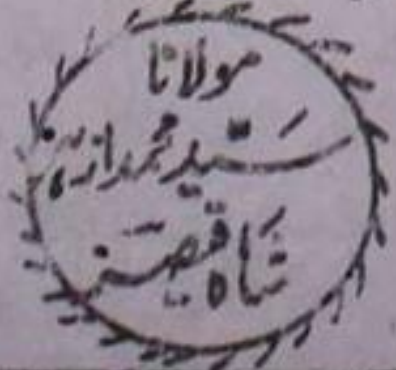 مولانا
سید محمد ازہر
شاہ قیصر